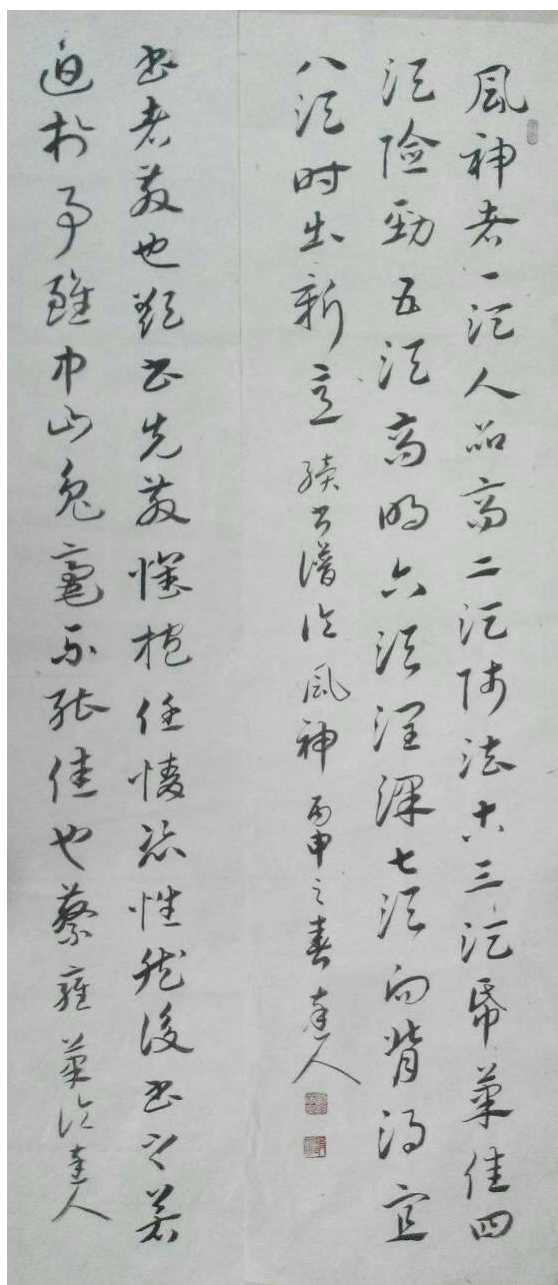 風神者一須人品高二須師法古三須帋筆佳四
須險勁五須高明六須潤澤七須向背得宜
八須时出新意續書譜論風神丙申之春達人
書者散也欲書先散懷抱任情恣性然後書之若
迫於事雖中山兔毫不能佳也蔡雍筆論達人